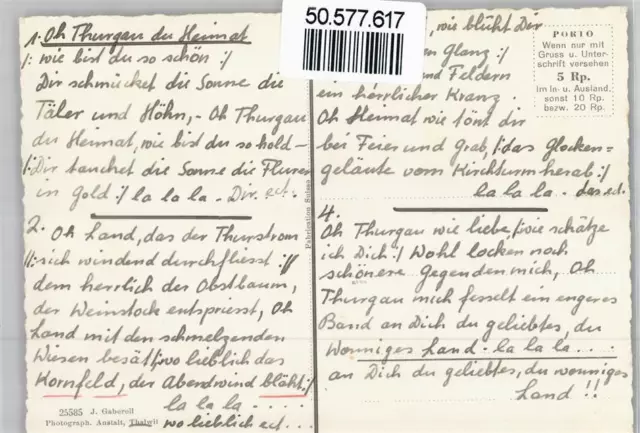 1. Oh Thurgau du Heimat
/: wie bist du so schön :/
Dir schmücket die Sonne die
Täler und Höhn, - Oh Thurgau
du Heimat, wie bist du so hold -
/: Dir tauchet die Sonne die Fluren
in Gold :/ la la la - Dir. ect.
2. Oh Land, das der Thurstrom
//: sich windend durchfliesst ://
dem herrlich der Obstbaum,
der Weinstock entspriesst, Oh
Land mit den schmelzenden
Wiesen besät /: wo lieblich das
Kornfeld, der Abendwind bläht :/
la la la . . . . .
wo lieblich ect...
25585 J. Gaberell
Photograph. Anstalt, Thalwil
50.577.617
, wie blüht Dir
Glanz :/
und Feldern
ein herrlicher Kranz.
Oh Heimat wie tönt dir
bei Feier und Grab, /: das Glocken=
geläute vom Kirchturm herab :/
la la la - das ect.
4.
Oh Thurgau wie liebe /: wie schätze
ich Dich :/ Wohl locken noch
schönere Gegenden mich, Oh
Thurgau mich fesselt ein engeres
Band an Dich du geliebtes, du
Wonniges Land - la la la . . . .
an Dich du geliebtes, du wonniges
Land !!
PORTO
Wenn nur mit
Gruss u. Unter-
schrift versehen
5 Rp.
im In- u. Ausland.
sonst 10 Rp.
bezw. 20 Rp.